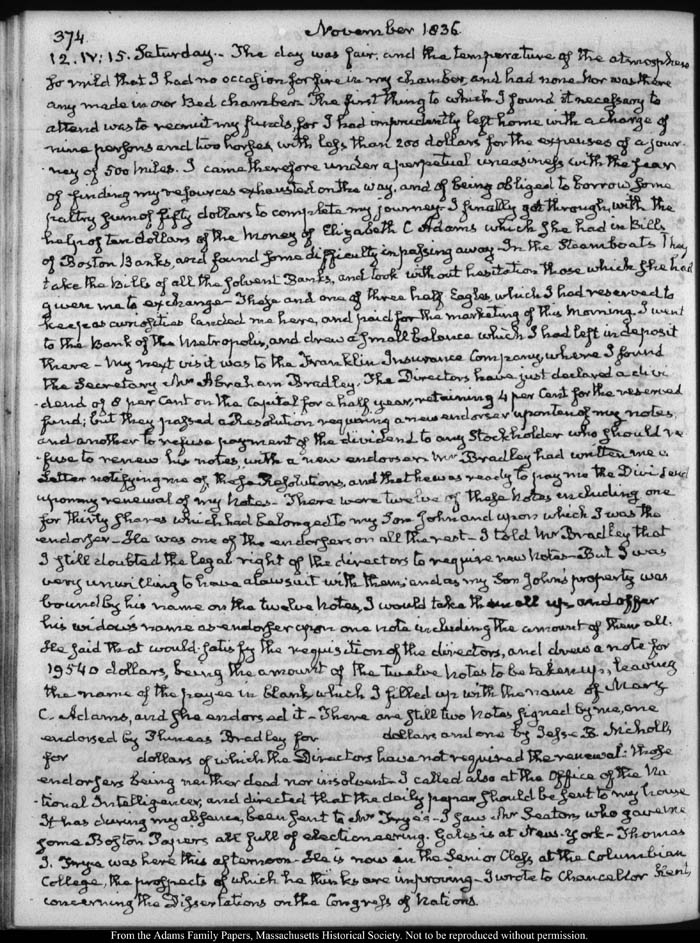 374.
November 1836
12. IV: 15. Saturday. - The day was fair, and the temperature of the atmosphere
so mild that I had no occasion for fire in my chamber, and had none. Nor was there
any made in our Bed chamber. The first thing to which I found it necessary to
attend was to recruit my funds, for I had imprudently left home with a charge of
nine persons and two horses, with less than 200 dollars for the expenses of a jour-
-ney of 500 miles. I came therefore under a perpetual uneasiness with the fear
of finding my resources exhausted on the way, and of being obliged to borrow some
paltry sum of fifty dollars to complete my journey - I finally got through, with the
help of ten dollars of the money of Elizabeth C Adams which she had in Bills
of Boston Banks, and found some difficulty in passing away - In the Steamboats they
take the Bills of all the solvent Banks, and took without hesitation those which she had
given me to exchange - These and one of three half Eagles, which I had reserved to
keep as curiosities landed me here, and paid for the marketing of this morning. I went
to the Bank of the Metropolis, and drew a small balance which I had left in deposit
there - My next visit was to the Franklin Insurance Company, where I found
the Secretary Mr Abraham Bradley. The Directors have just declared a divi
-dend of 8 per Cent on the Capital for a half year, retaining 4 per Cent for the reserved
fund; but they passed a Resolution requiring a new endorser upon ten of my notes,
and another to refuse payment of the dividend to any Stockholder who should re
-fuse to renew his notes, with a new endorser. Mr Bradley had written me a
Letter notifying me of these Resolutions, and that he was ready to pay me the Dividend
upon my renewal of my Notes - There were twelve of these Notes including one
for thirty shares which had belonged to my Son John and upon which I was the
endorser - He was one of the endorsers on all the rest - I told Mr Bradley that
I still doubted the legal right of the directors to require new Notes - But I was
very unwilling to have a lawsuit with them; and as my Son John's property was
bound by his name on the twelve Notes, I would take them all up and offer
his widow's name as endorser upon one note including the amount of them all.
He said that would satisfy the requisition of the directors, and drew a note for
19540 dollars, being the amount of the twelve Notes to be taken up, leaving
the name of the payee in blank which I filled up with the name of Mary
C. Adams, and she endorsed it - There are still two Notes signed by me, one
endorsed by Phineas Bradley for dollars and one by Jesse B. Nicholls
for dollars of which the Directors have not required the renewal: those
endorsers being neither dead nor insolvent - I called also at the Office of the Na
-tional Intelligencer, and directed that the daily paper should be sent to my house
It has during my absence, been sent to Mr Frye's - I saw Mr Seaton, who gave me
some Boston Papers all full of electioneering. Gales is at New-York - Thomas
J. Frye was here this afternoon - He is now in the Senior Class at the Columbian
College, the prospects of which he thinks are improving - I wrote to Chancellor Kent,
concerning the Dissertations on the Congress of Nations.
From the Adams Family Papers, Massachusetts Historical Society. Not to be reproduced without permission.